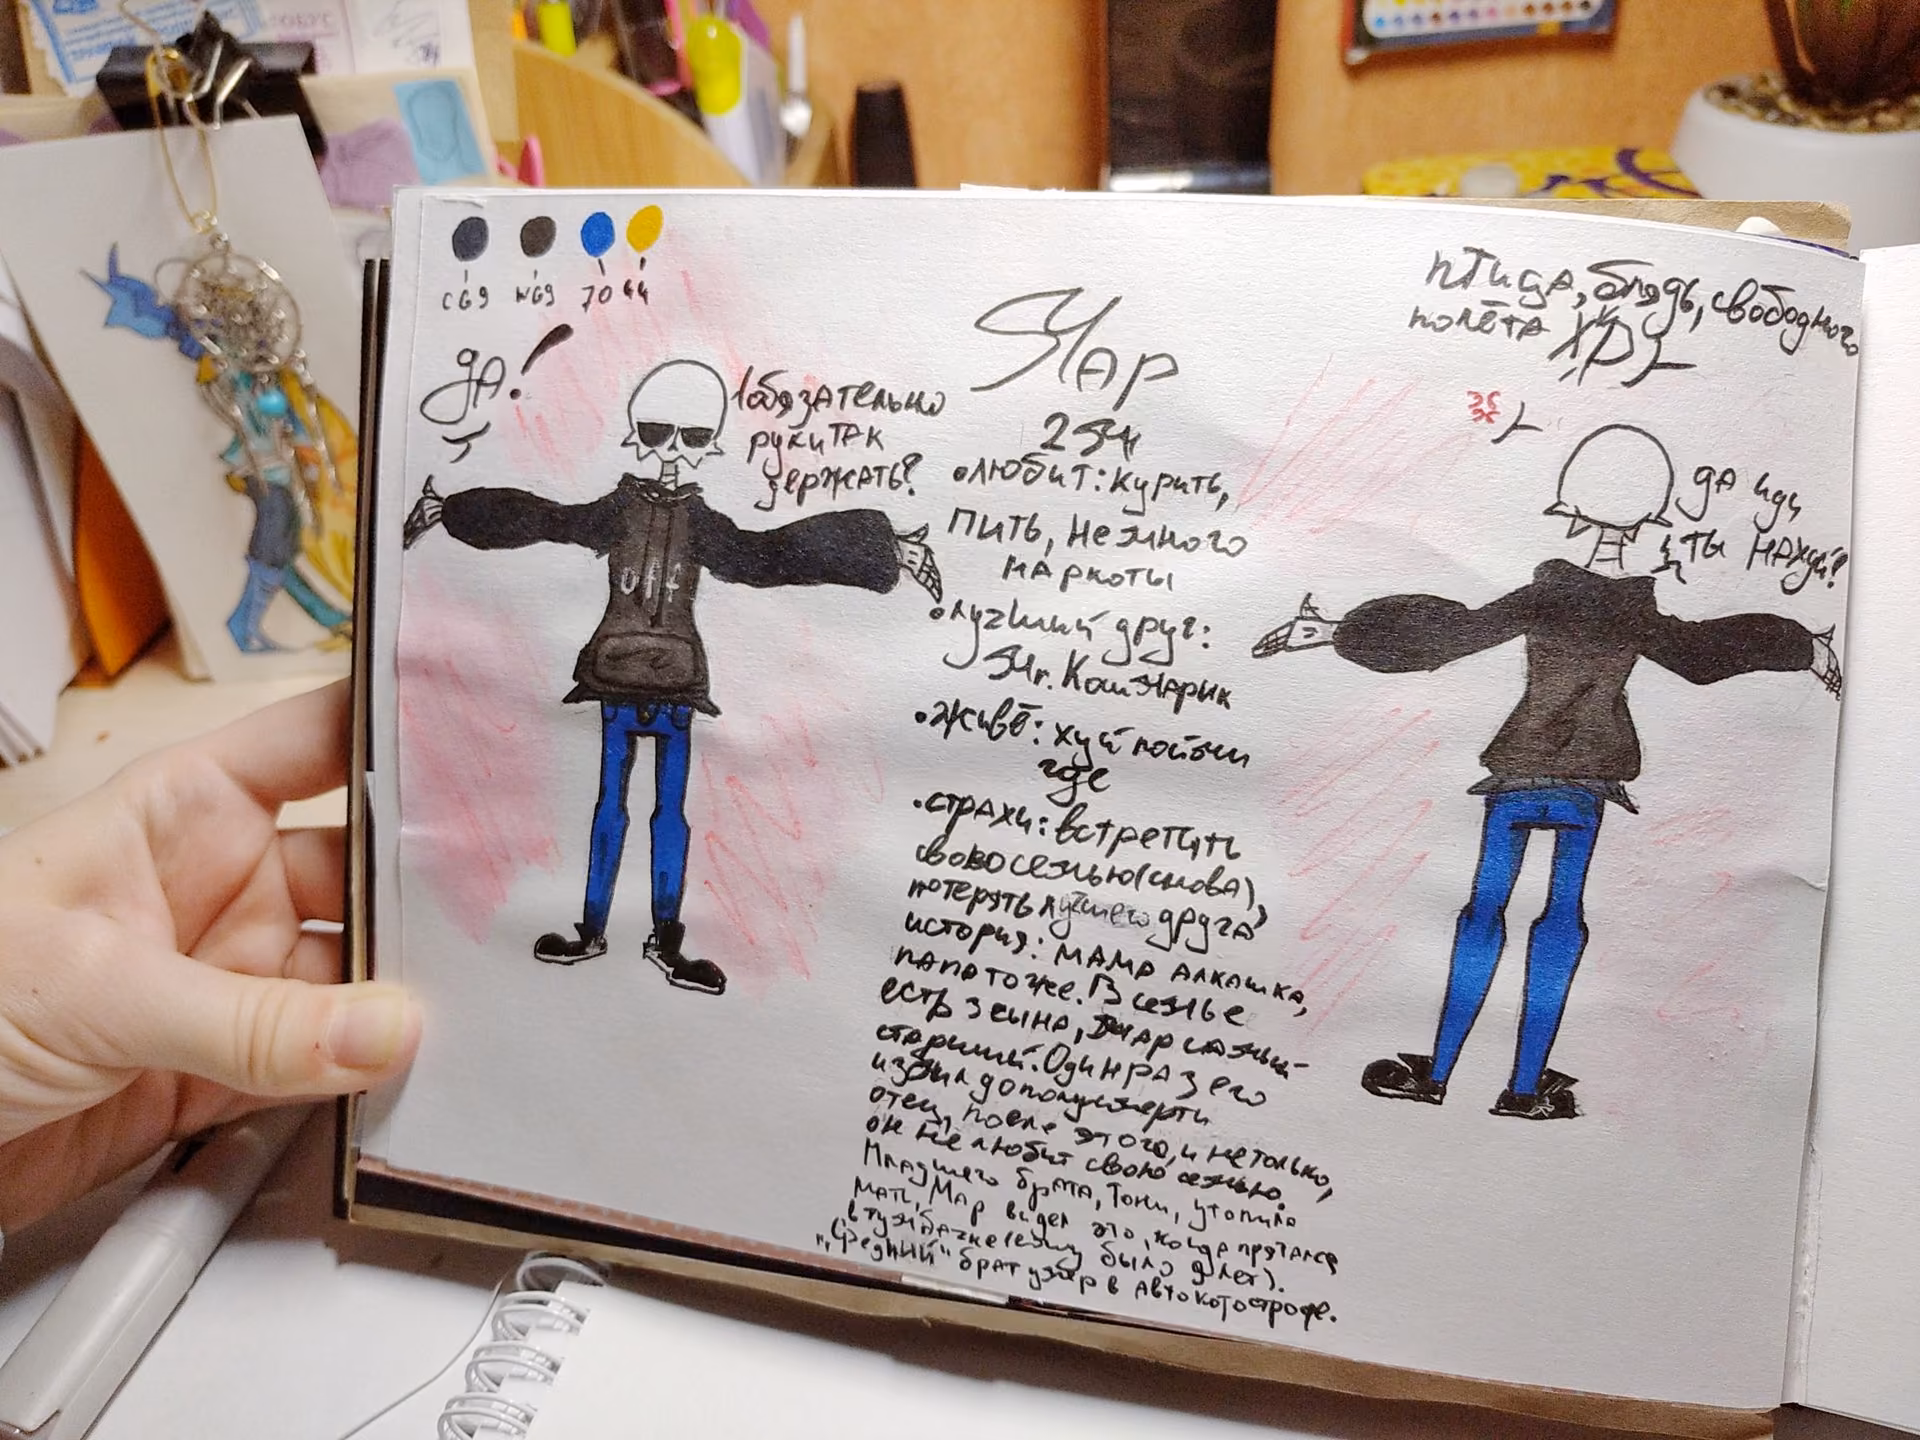 CG9 WG9 70 44
да!
обязательно
руки так
держать?
Мар
птица, блядь, свободного
полёта XD
да иди
ты нахуй!
•любит: курить,
пить, немного
наркоты
•лучший друг:
Mr. Кошмарик
•живё: хуй пойми
где
•страхи: встретить
свою семью (снова),
потерять лучшего друга
история: мама алкашка,
папа тоже. В семье
есть 3 сына, Мар самый
старший. Один раз его
избил до полусмерти
отец, после этого, и не только,
он не любит свою семью.
Младшего брата, Тони, утопила
мать, Мар видел это, когда прятался
в тумбачке (ему было 9 лет).
"Средний" брат умер в автокотострофе.
off